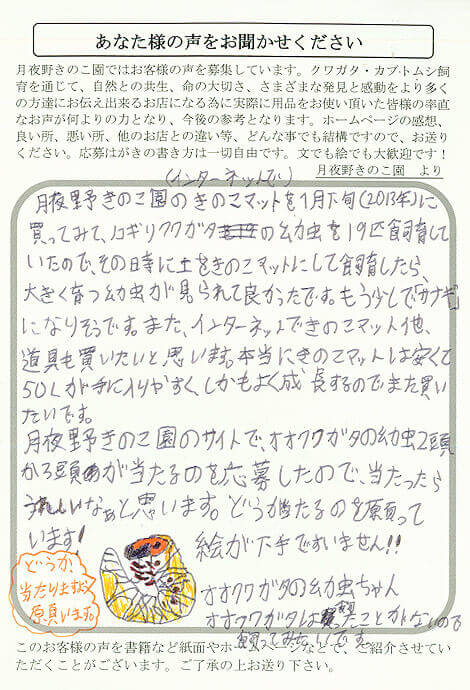 あなた様の声をお聞かせください
月夜野きのこ園ではお客様の声を募集しています。クワガタ・カブトムシ飼
育を通じて、自然との共生、命の大切さ、さまざまな発見と感動をより多く
の方達にお伝え出来るお店になる為に実際に用品をお使い頂いた皆様の率直
なお声が何よりの力となり、今後の参考となります。ホームページの感想、
良い所、悪い所、他のお店との違い等、どんな事でも結構ですので、お送り
ください。応募はがきの書き方は一切自由です。文でも絵でも大歓迎です！
月夜野きのこ園 より
(インターネットで)
月夜野きのこ園のきのこマットを1月下旬(2013年)に
買ってみて、ノコギリクワガタの幼虫を19匹飼育して
いたので、その日時に土をきのこマットにして飼育したら、
大きく育つ幼虫が見られて良かったです。もう少しで「サナギ」
になりそうです。また、インターネットできのこマット他、
道具も買いたいと思います。本当にきのこマットは安くて
50Lが手に入りやすく、しかもよく成長するのでまた買い
たいです。
月夜野きのこ園のサイトで、オオクワガタの幼虫2頭
か3頭が当たるのを応募したので、当たったら
うれしいなぁと思います。どうか当たるのを願って
います!
絵が下手ですいません!!
どうか
当たりますよう
願います。
オオクワガタの幼虫ちゃん
オオクワガタは飼ったことがないので
飼ってみたいです。
このお客様の声を書籍など紙面やホームページなどで、ご紹介させてい
ただくことがございます。ご了承の上お送り下さい。